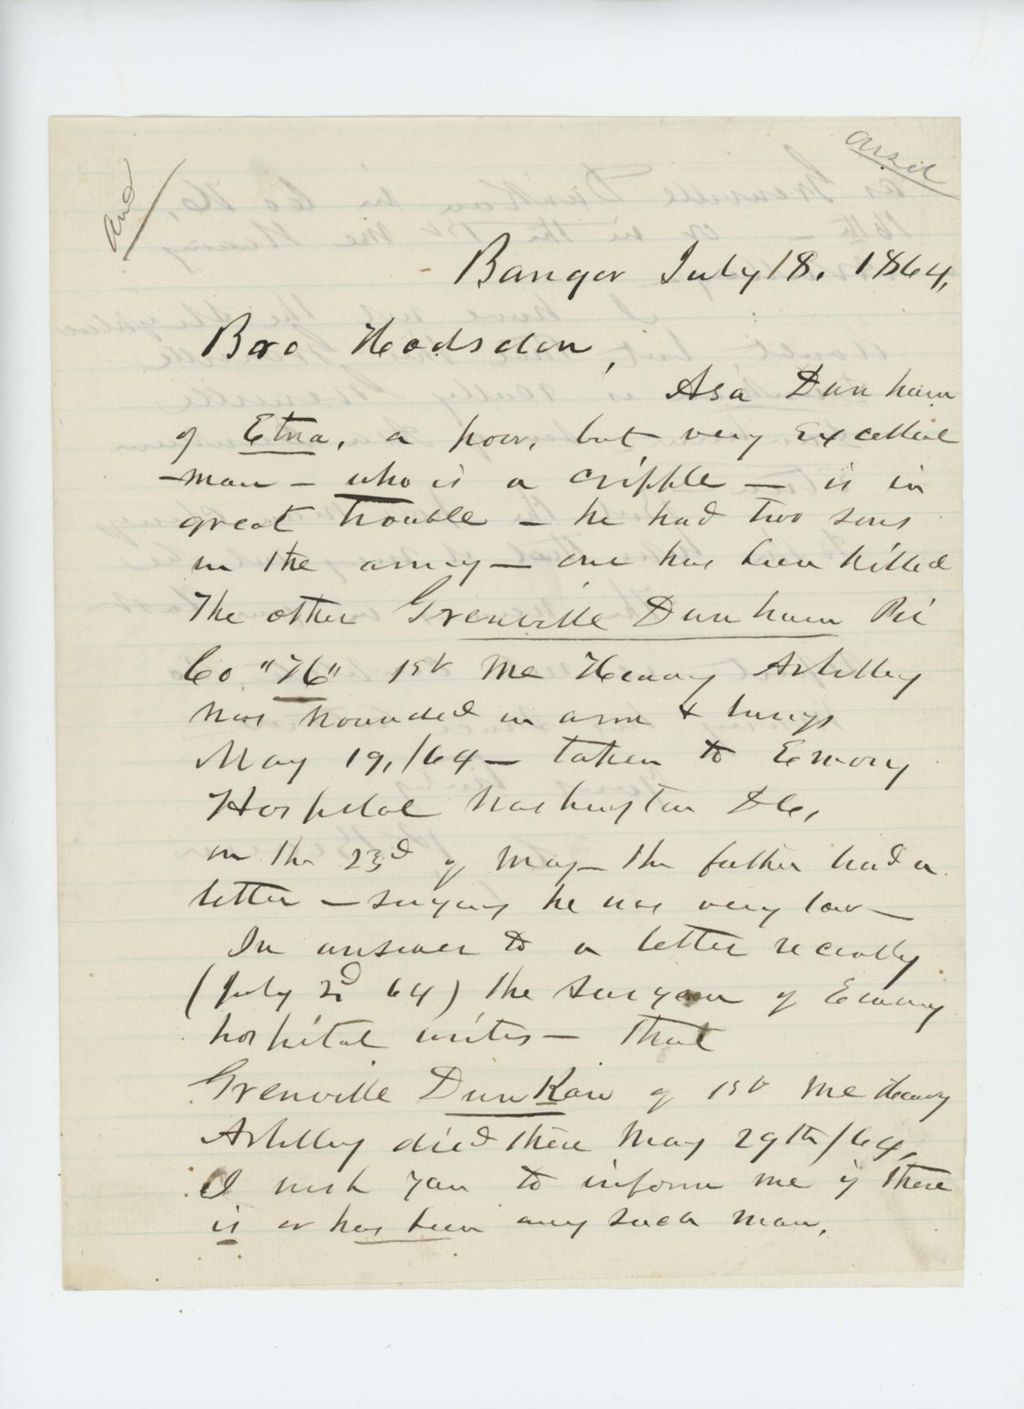 and
Bangor July 18. 1864,
Bro Hodsdon,
Asa Dunham
of Etna, a poor, but very excellent
man - who is a cripple - is in
great trouble - he had two sons
in the army - one has been killed
The other Grenville Dunham Pri
Co. "H" 1st Me Heavy Artillery
was wounded in arm & lungs
May 19, /64 - taken to Emory
Hospital Washington DC,
on the 23d of May - the father had a
letter - saying he was very low -
In answer to a letter recently
(July 2d 64) the Surgeon of Emory
hospital writes - that
Grenville DunKan of 1st Me Heavy
Artillery died there May 29th /64,
I wish you to inform me if there
is or has been any such man.